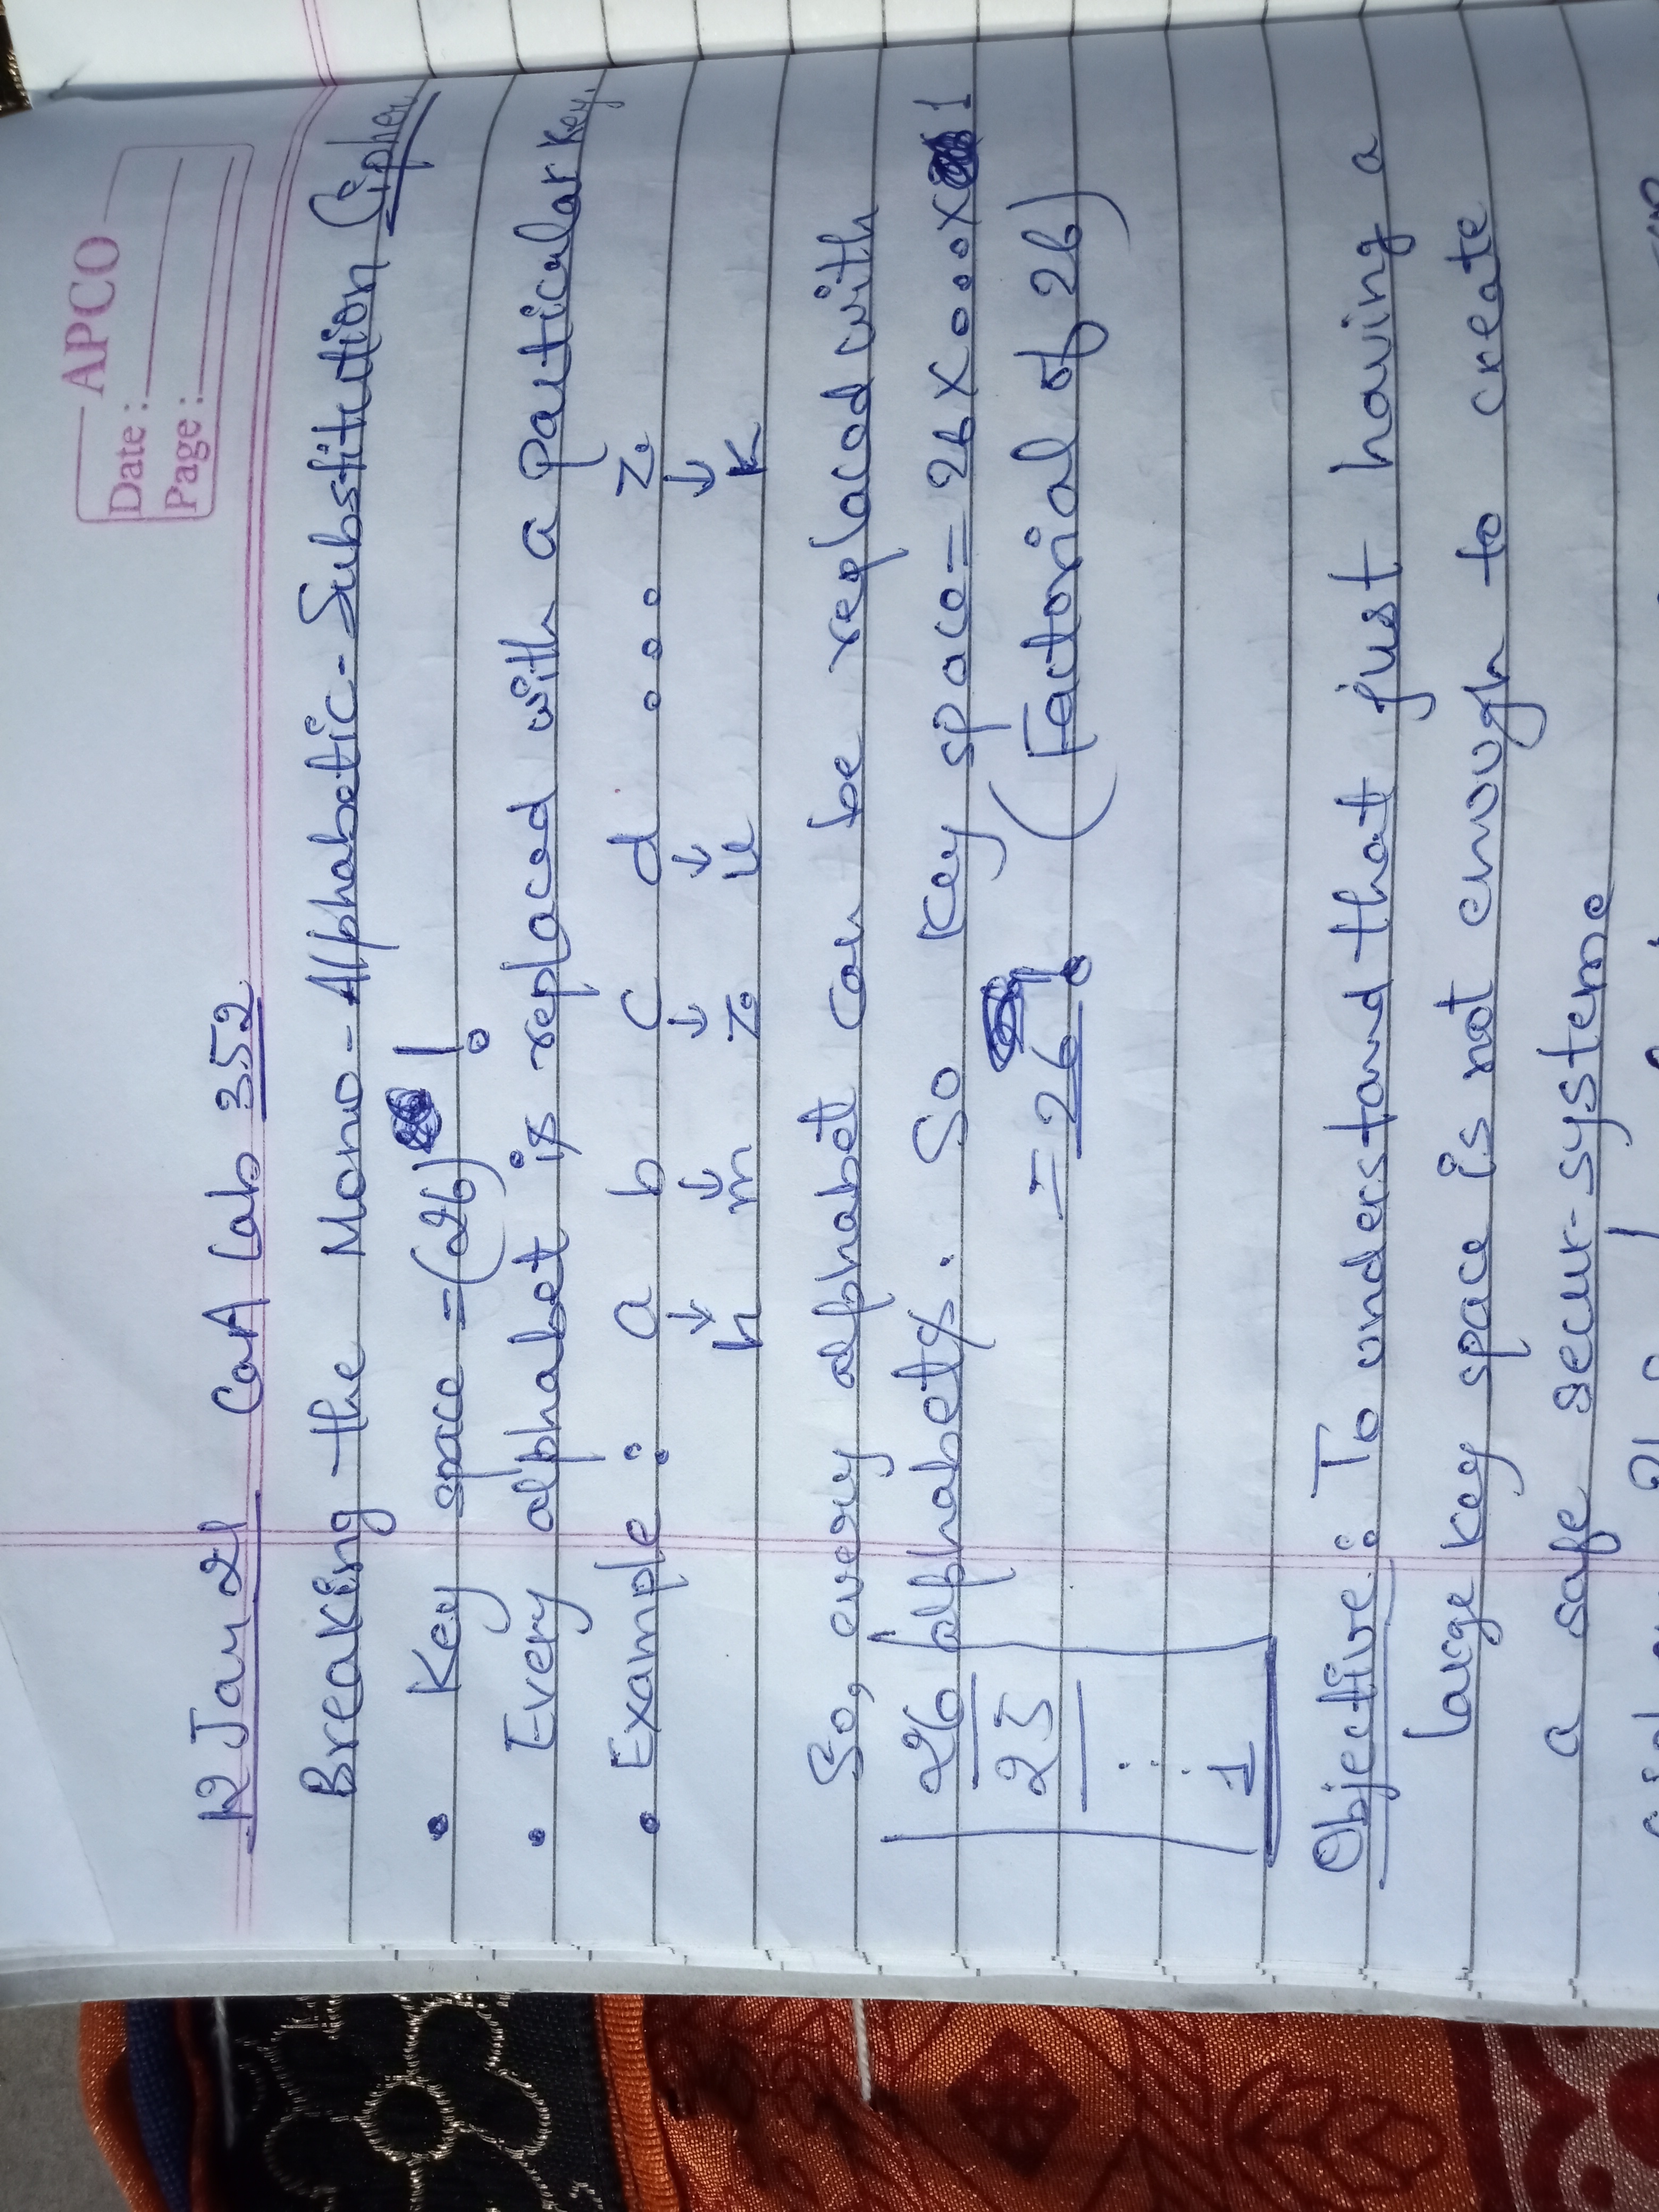 APCO
Date :
Page :
12 Jan 21 CaA Lab 352
Breaking the Mono-Alphabetic-Substitution Cipher
• Key space =(26) !
• Every alphabet is replaced with a particular key.
• Example : a b c d ... z
↓ ↓ ↓ ↓ ↓
h m z u k
So, every alphabet can be replaced with
26 alphabets. So key space = 26 X ... X 1
25
= 26! (Factorial of 26)
⋮
1
Objective : To understand that just having a
large key space is not enough to create
a safe secur-system.